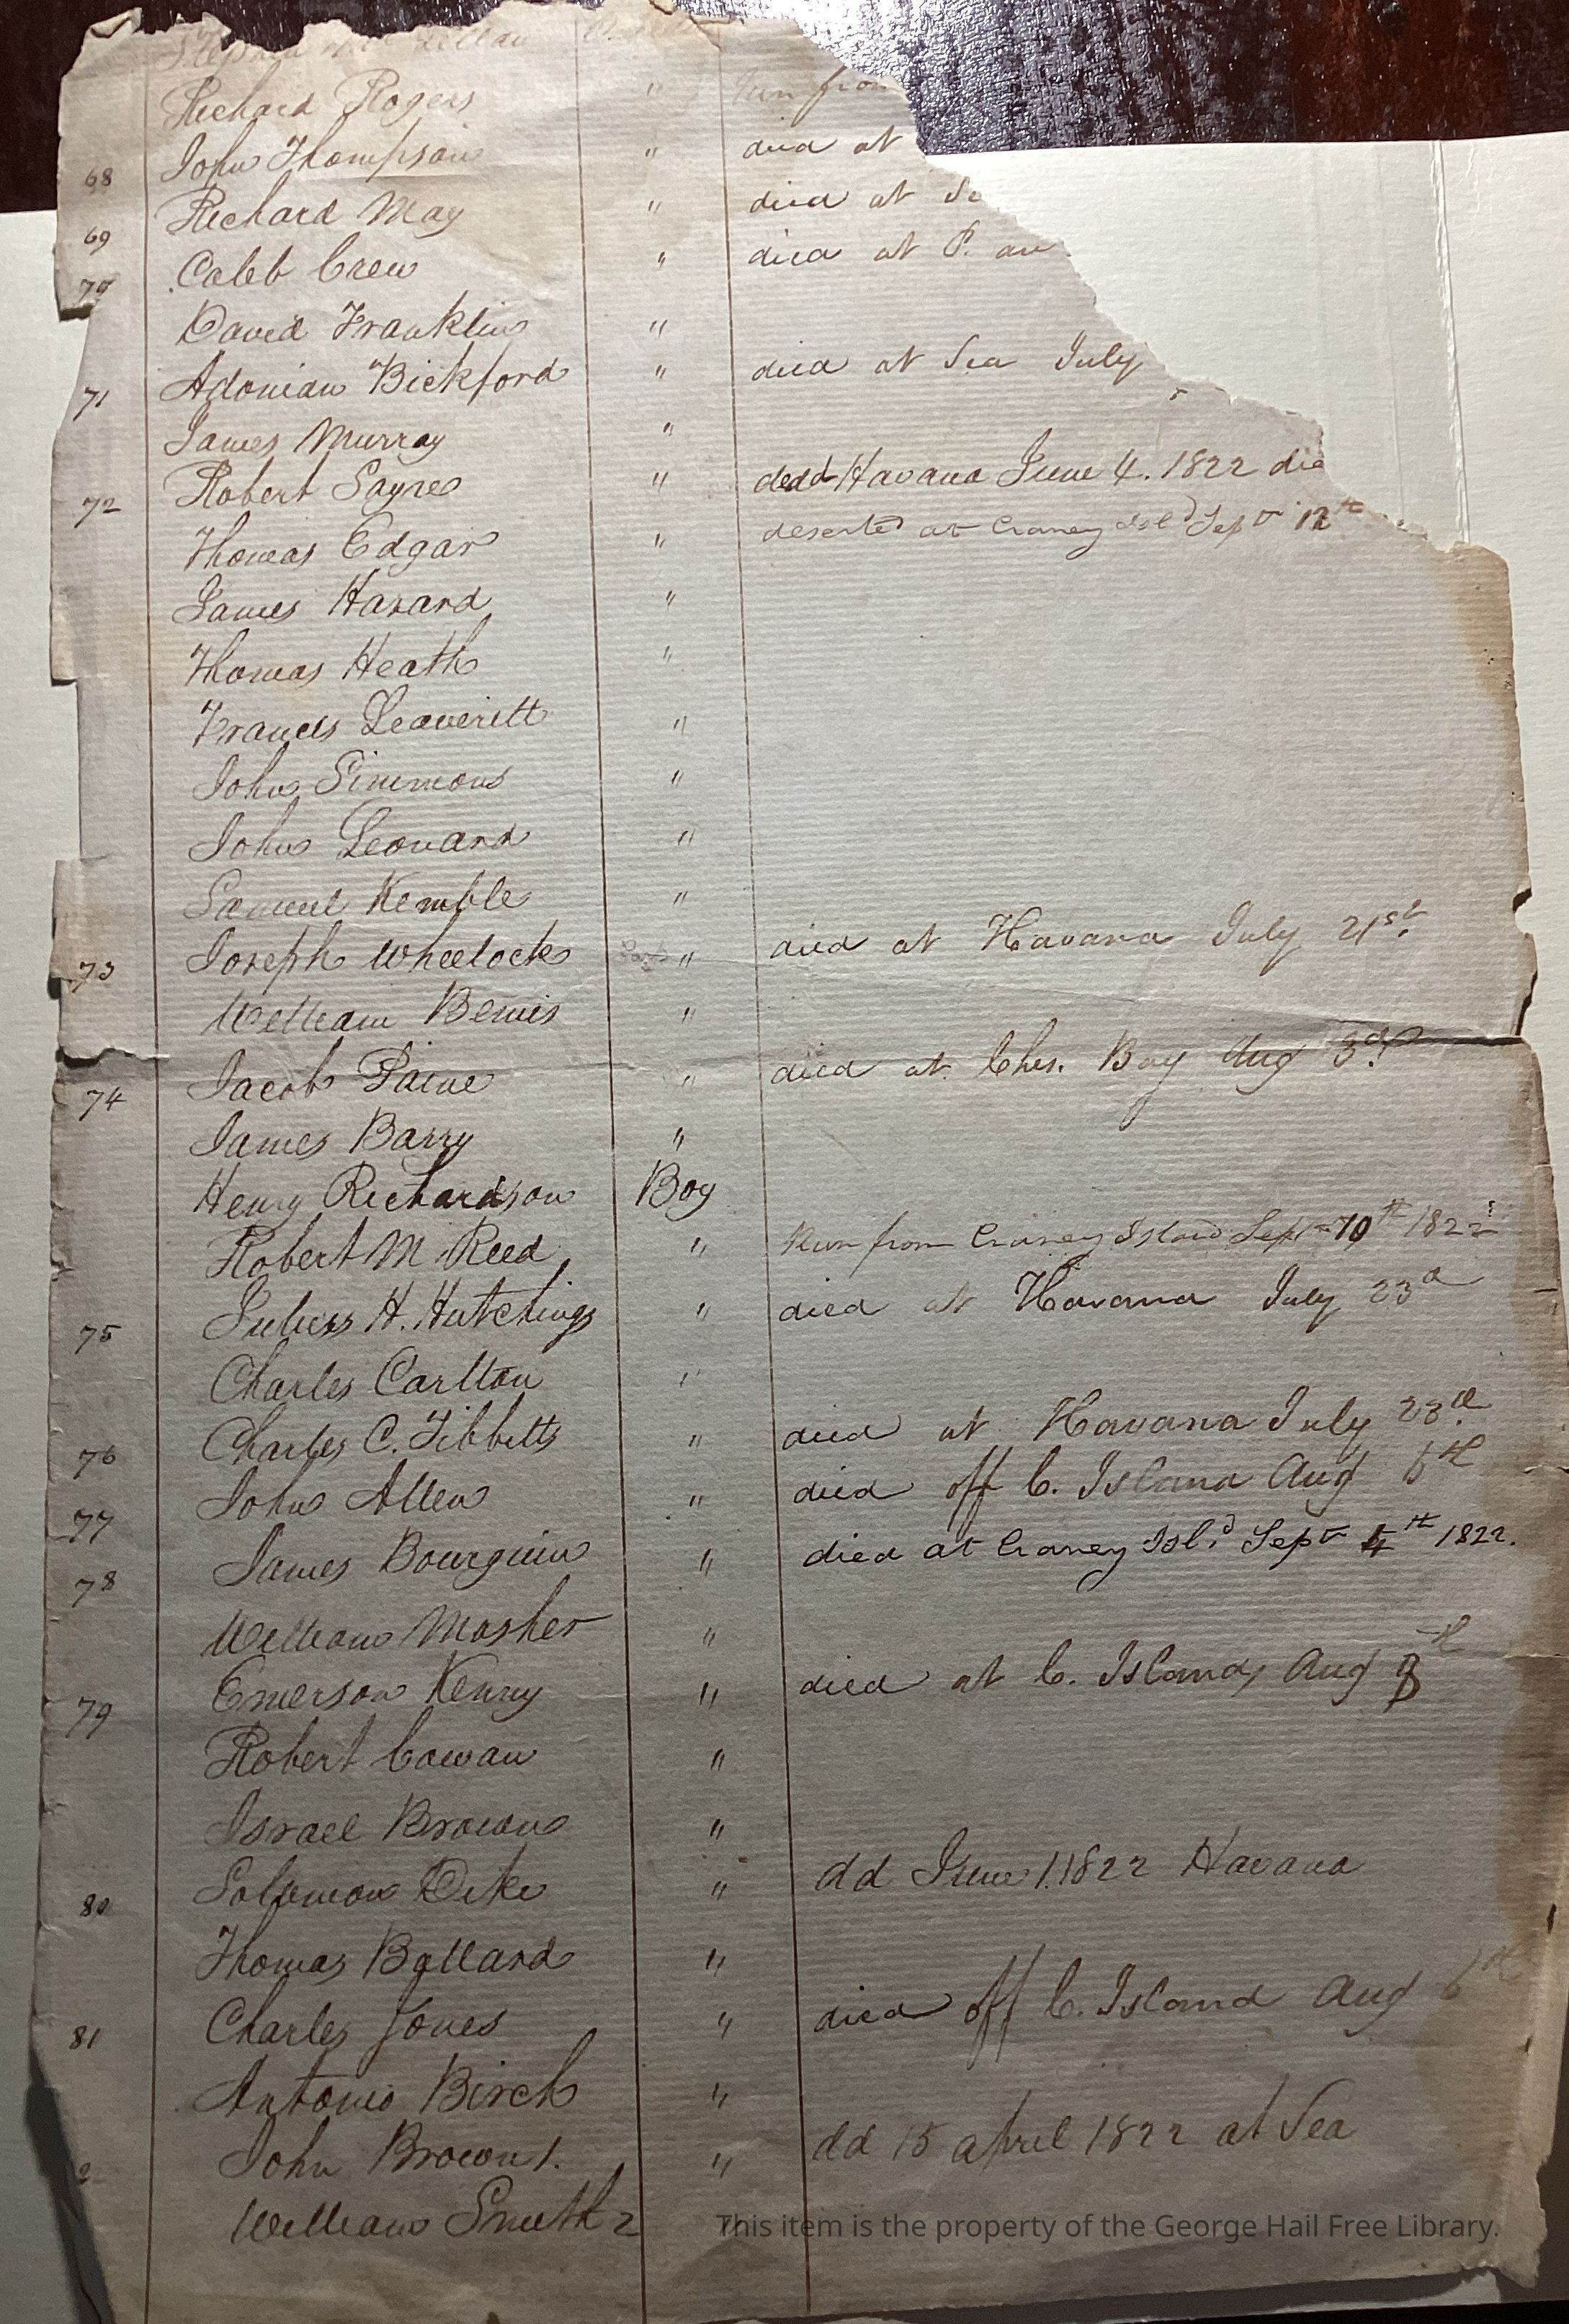 Stephen
Richard Rogers " Run from
68 John Thompson " died at
69 Richard May " died at Se
70 Caleb Crew " died at P. au
David Franklin "
71 Adonian Bickford " died at Sea July
James Murray "
72 Robert Sayre " dedd Havana June 4. 1822 die
Thomas Edgar " deserted at Craney Isld Sept 12th
James Hazard "
Thomas Heath "
Francis Leaveritt "
John Simmons "
John Leonard "
Samuel Kemble "
73 Joseph Wheelock " died at Havana July 21st.
William Bemis "
74 Jacob Paine " died at Ches. Bay Aug 3d.
James Barry "
Henry Richardson Boy
Robert M Reed " Run from Craney Island Sept 10th 1822
75 H. Hutchings " died at Havana July 23d
Charles Carlton "
76 Charles C. Tibbetts " died at Havana July 28th.
77 John Allen " died off C. Island Aug 6th
78 James Bourguin " died at Craney Isl.d Sept 4th 1822.
William Mosher "
79 Emerson Kenny " died at C. Island, Aug 8th
Robert Cowan "
Israel Brown "
80 Solomon Dike " dd June 1. 1822 Havana
Thomas Ballard "
81 Charles Jones " died off C. Island Aug 6th
Antonio Birch "
2 John Brown 1. " dd 15 april 1822 at Sea
William Smith 2 "
This item is the property of the George Hail Free Library.